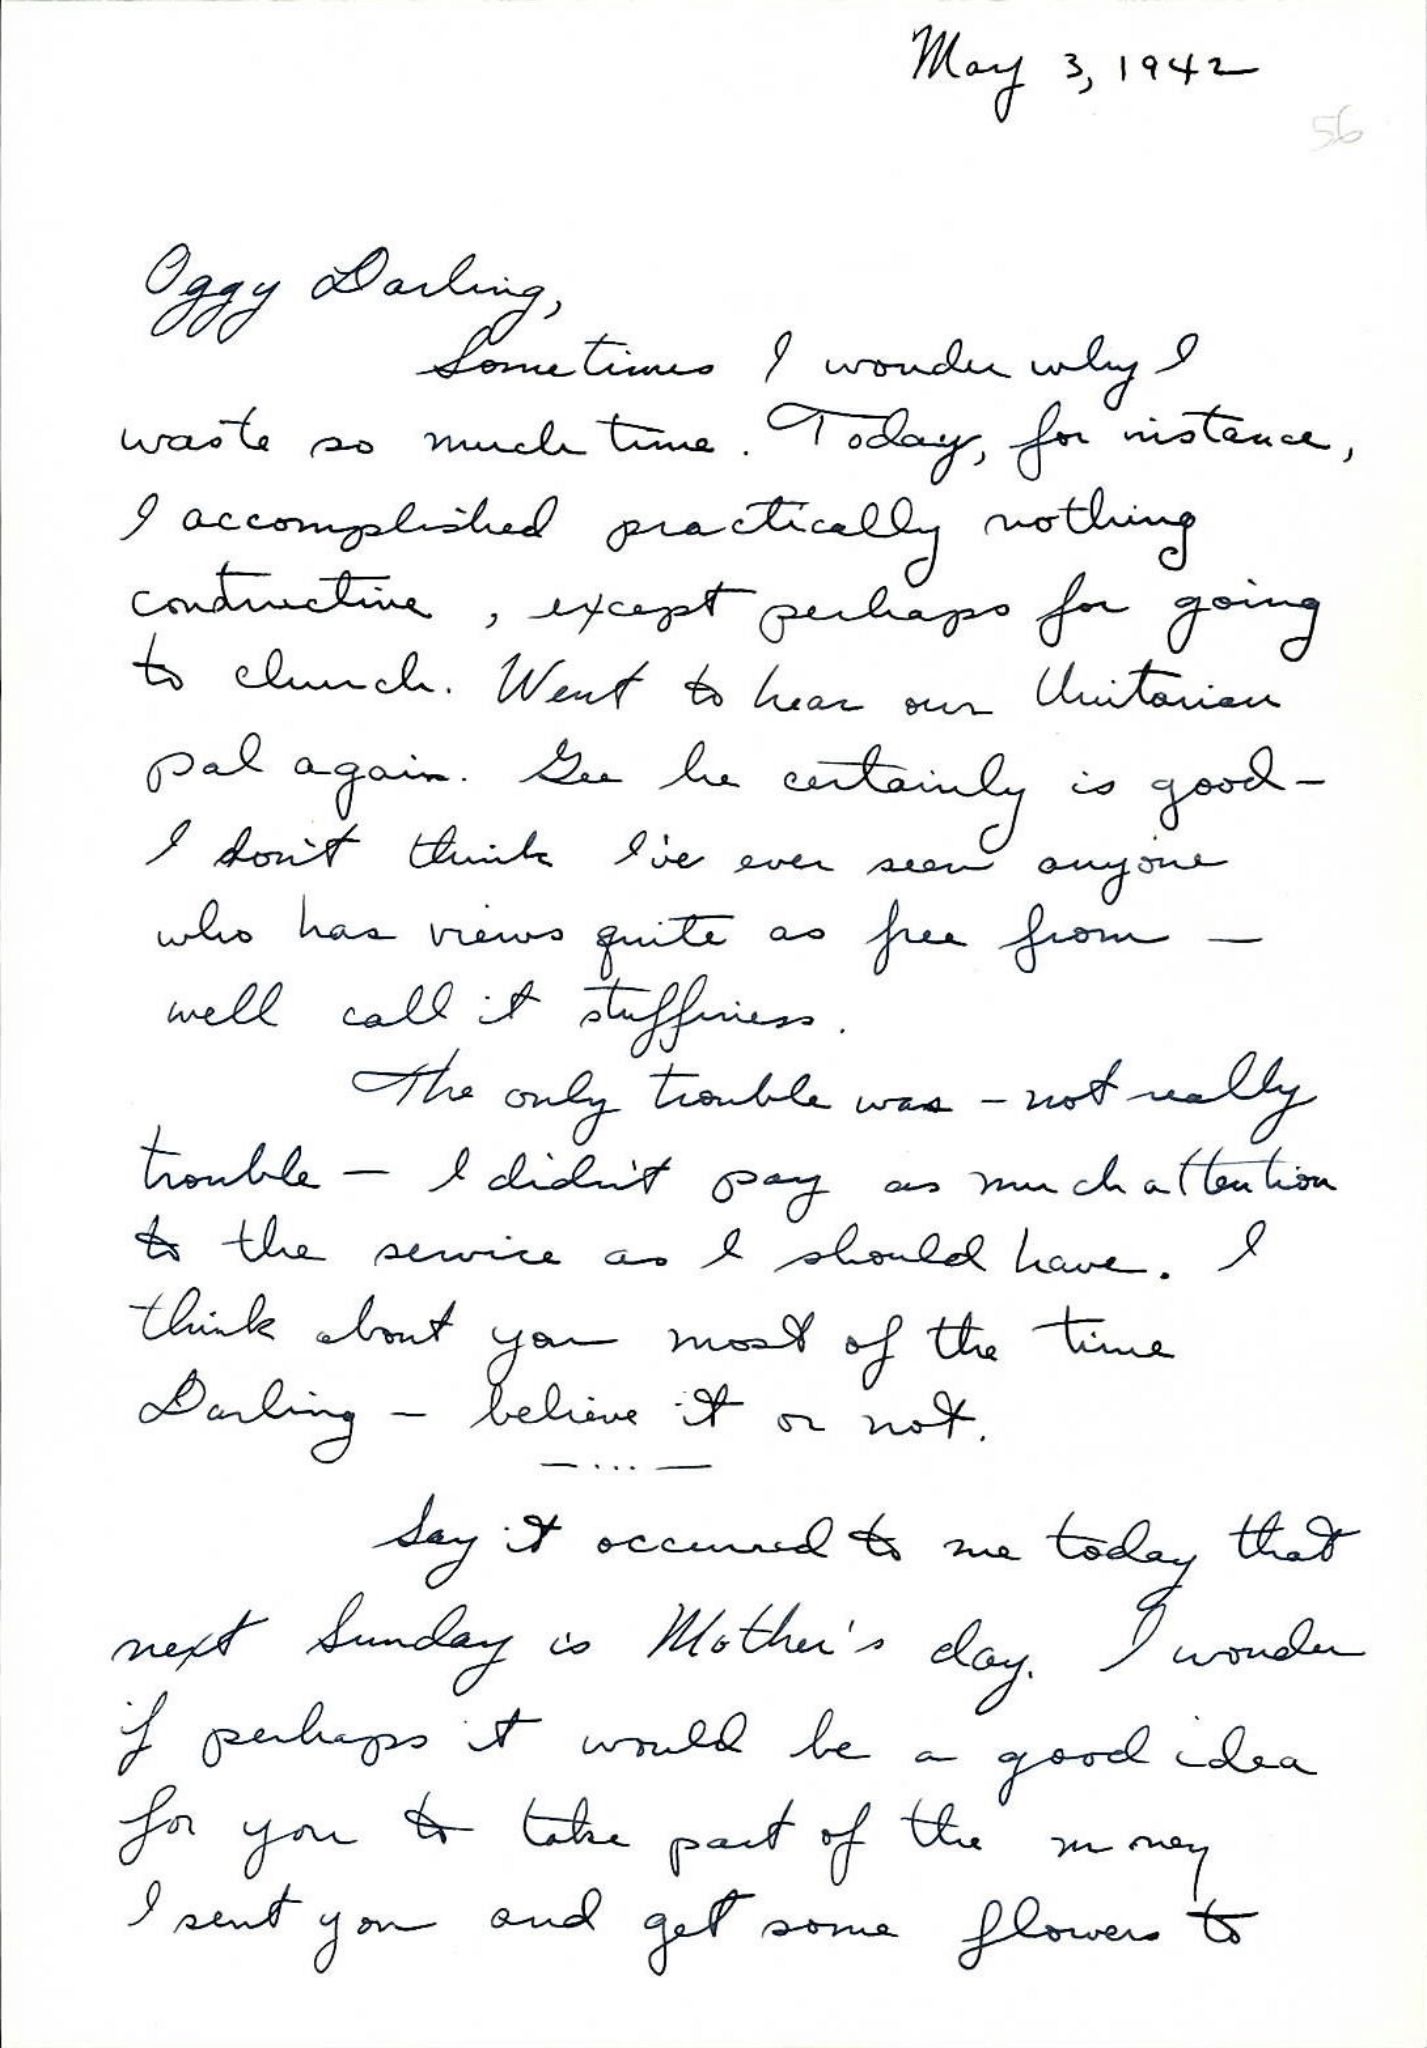 May 3, 1942
56
Oggy Darling,
Sometimes I wonder why I
waste so much time. Today, for instance,
I accomplished practically nothing
constructive, except perhaps for going
to church. Went to hear our Unitarian
pal again. Gee he certainly is good-
I don't think I've ever seen anyone
who has views quite as free from —
well call it stuffiness.
The only trouble was - not really
trouble — I didn't pay as much attention
to the service as I should have. I
think about you most of the time
Darling - believe it or not.
— ... —
Say it occurred to me today that
next Sunday is Mother's day. I wonder
if perhaps it would be a good idea
for you to take part of the money
I sent you and get some flowers to